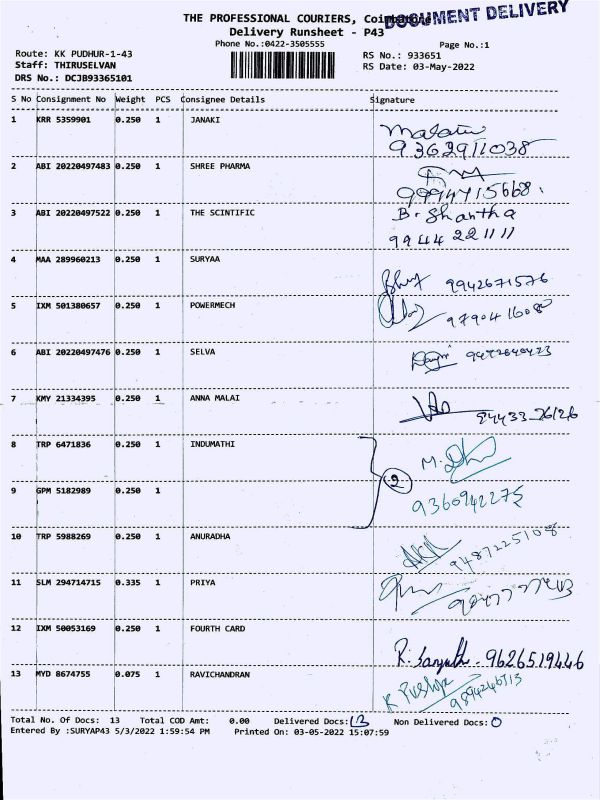 THE PROFESSIONAL COURIERS, Coimbatore
DOCUMENT DELIVERY
Delivery Runsheet - P43
Phone No.:0422-3505555
Page No.:1
Route: KK PUDHUR-1-43
RS No.: 933651
Staff: THIRUSELVAN
RS Date: 03-May-2022
DRS No.: DCJB93365101
S No Consignment No Weight PCS Consignee Details Signature
1 KRR 5359901 0.250 1 JANAKI
9362911038
2 ABI 20220497483 0.250 1 SHREE PHARMA
9994715668.
3 ABI 20220497522 0.250 1 THE SCINTIFIC B. Shantha
9944 221111
4 MAA 289960213 0.250 1 SURYAA
9942671576
5 IXM 501380657 0.250 1 POWERMECH
9790416080
6 ABI 20220497476 0.250 1 SELVA
7 KMY 21334395 0.250 1 ANNA MALAI
94433 26126
8 TRP 6471836 0.250 1 INDUMATHI
2
9 GPM 5182989 0.250 1
9360942275
10 TRP 5988269 0.250 1 ANURADHA
9487225108
11 SLM 294714715 0.335 1 PRIYA
12 IXM 50053169 0.250 1 FOURTH CARD
9626519446
13 MYD 8674755 0.075 1 RAVICHANDRAN
K Pushpa
Total No. Of Docs: 13 Total COD Amt: 0.00 Delivered Docs: 13 Non Delivered Docs: 0
Entered By :SURYAP43 5/3/2022 1:59:54 PM Printed On: 03-05-2022 15:07:59